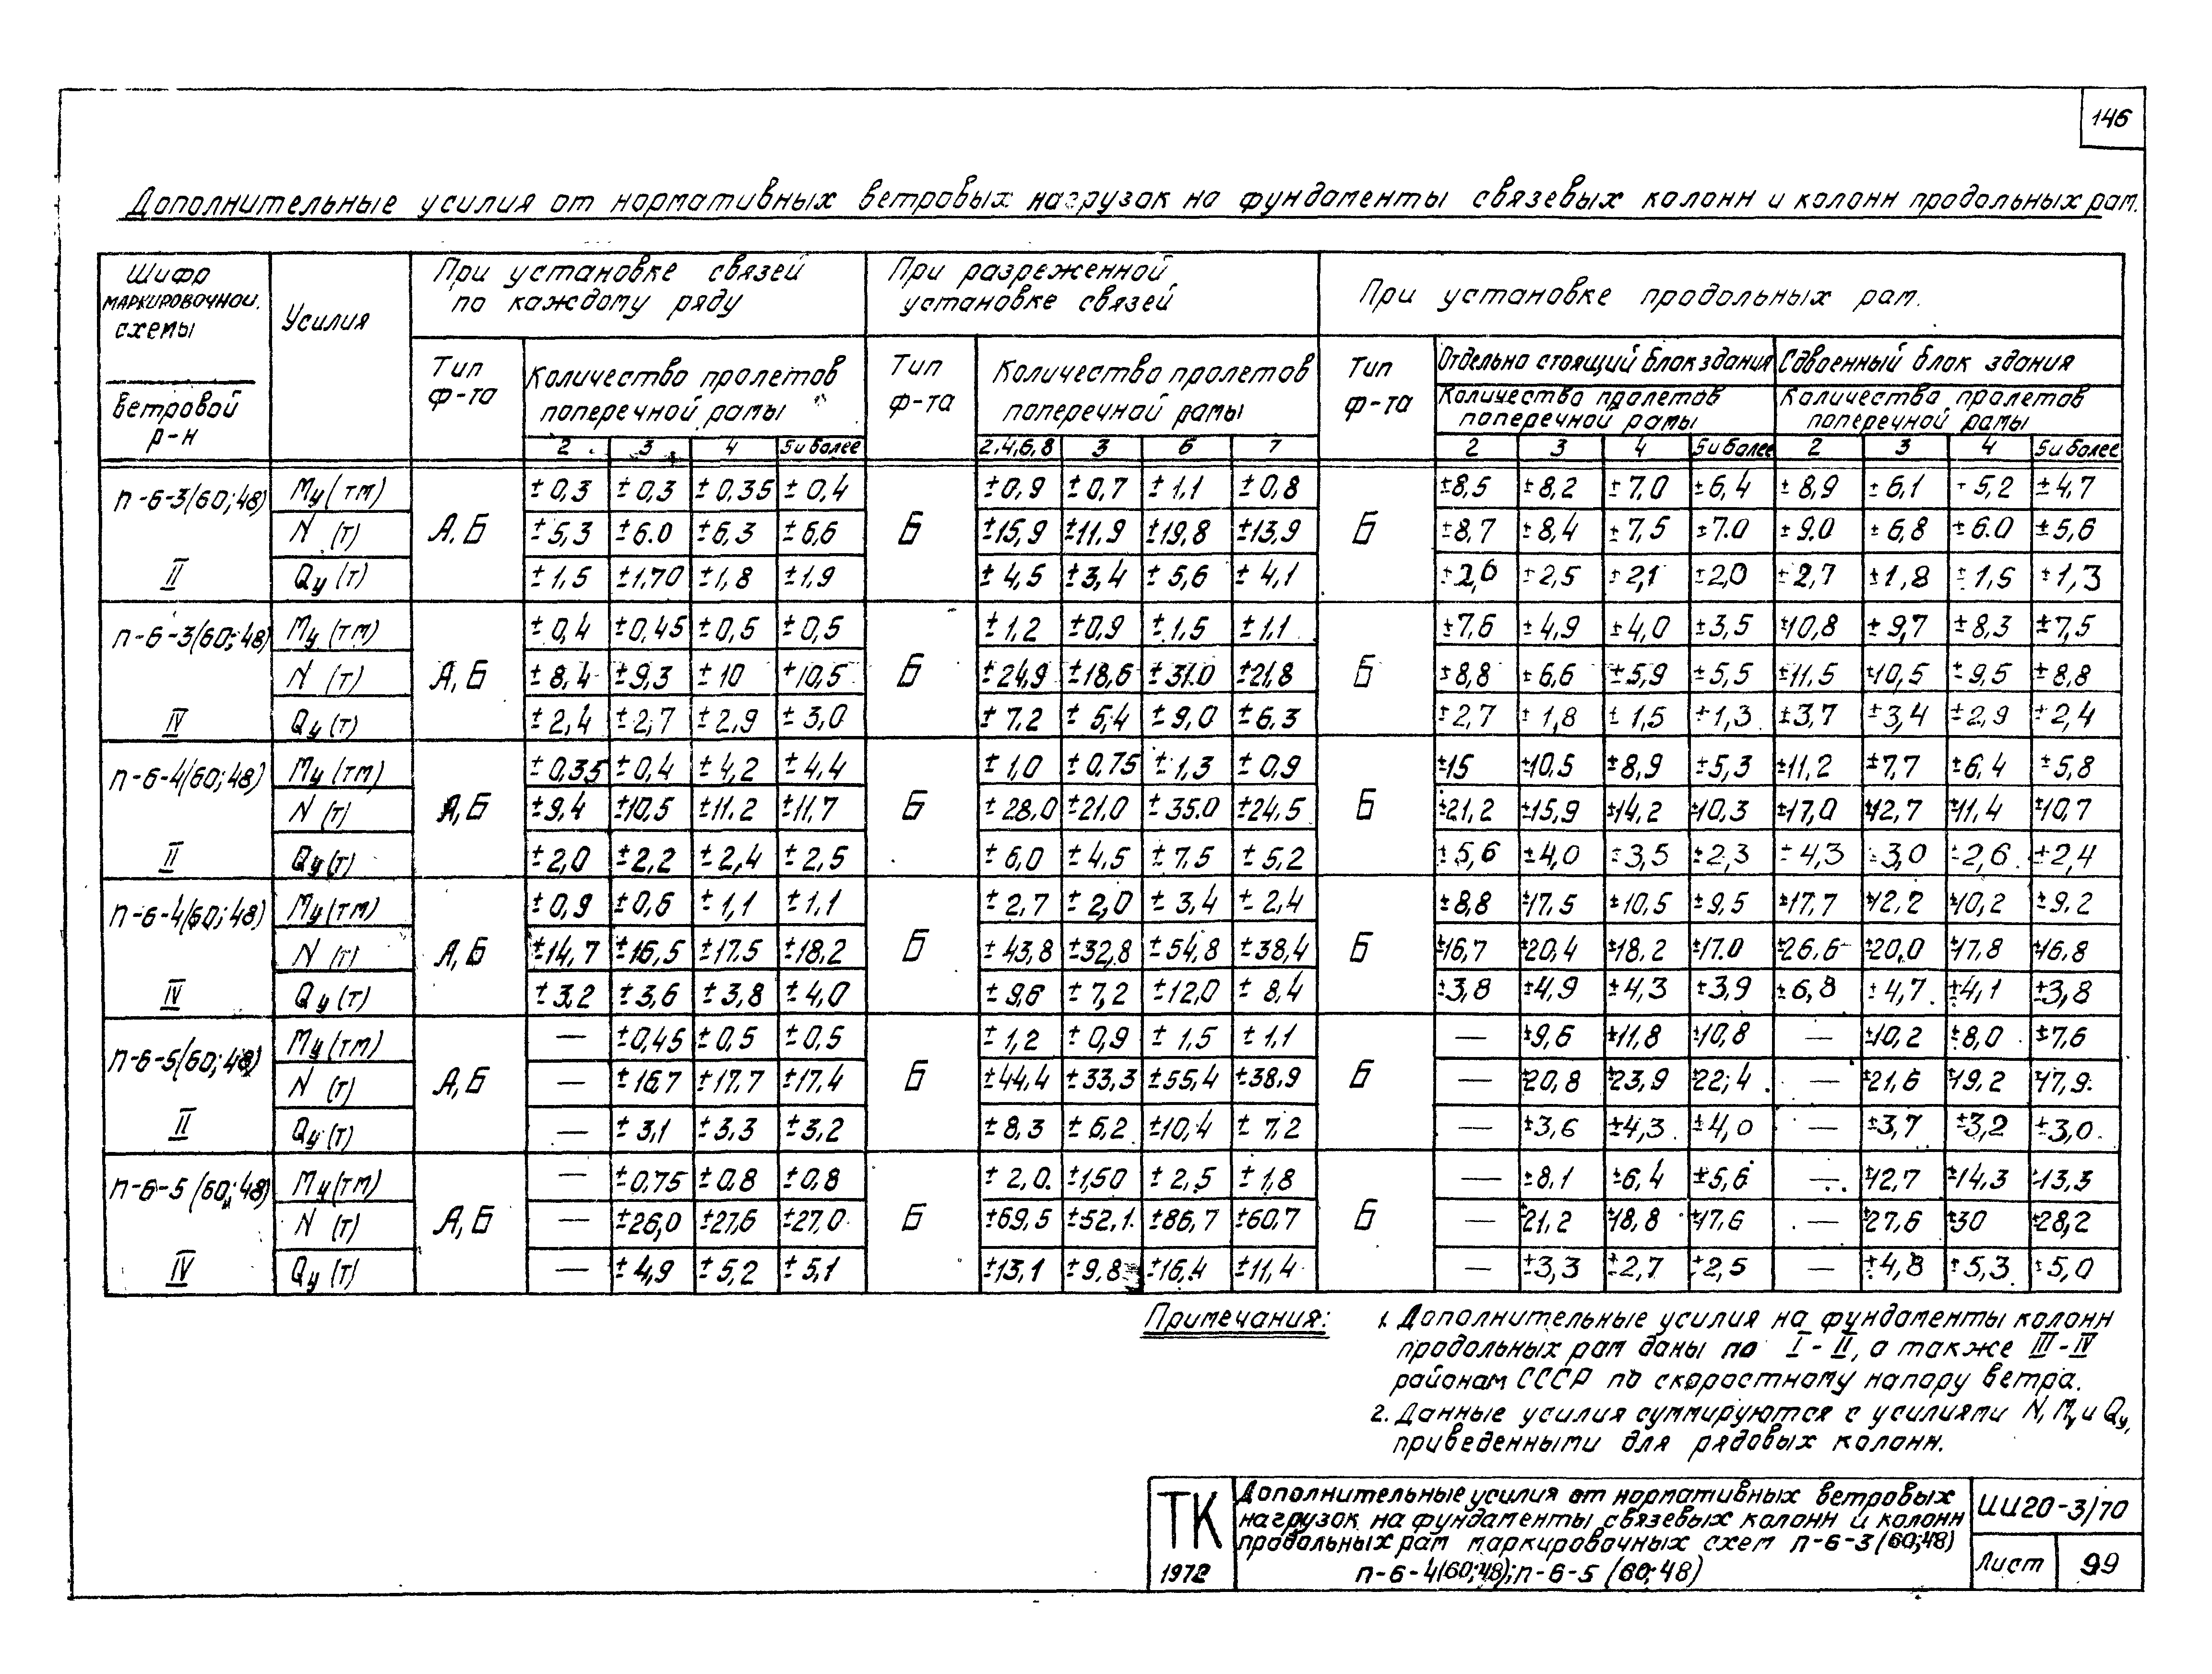 146
Дополнительные усилия от нормативных ветровых нагрузок на фундаменты связевых колонн и колонн продольных рам.
Шифр маркировочной. схемы
ветровой р-н
Усилия
При установке связей по каждому ряду
При разреженной установке связей
При установке продольных рам.
Тип ф-та
Количество пролетов поперечной рамы
Тип ф-та
Количество пролетов поперечной рамы
Тип ф-та
Отдельно стоящий блок здания
Сдвоенный блок здания
Количество пролетов поперечной рамы
Количество пролетов поперечной рамы
2 3 4 5 и более 2,4,6,8 3 6 7 2 3 4 5 и более 2 3 4 5 и более
п-6-3(60;48) II А,Б Б Б
Mу (тм) ±0,3 ±0,3 ±0,35 ±0,4 ±0,9 ±0,7 ±1,1 ±0,8 ±8,5 ±8,2 ±7,0 ±6,4 ±8,9 ±6,1 +5,2 ±4,7
N (т) ±5,3 ±6.0 ±6,3 ±6,6 ±15,9 ±11,9 ±19,8 ±13,9 ±8,7 ±8,4 ±7,5 ±7.0 ±9.0 ±6,8 ±6.0 ±5,6
Qу (т) ±1,5 ±1,70 ±1,8 ±1,9 ±4,5 ±3,4 ±5,6 ±4,1 ±2,6 ±2,5 ±2,1 ±2,0 ±2,7 ±1,8 ±1,5 ±1,3
п-6-3(60;48) IV А,Б Б Б
Mу (тм) ±0,4 ±0,45 ±0,5 ±0,5 ±1,2 ±0,9 ±1,5 ±1,1 ±7,6 ±4,9 ±4,0 ±3,5 ±10,8 ±9,7 ±8,3 ±7,5
N (т) ±8,4 ±9,3 ±10 ±10,5 ±24,9 ±18,6 ±31.0 ±21,8 ±8,8 ±6,6 ±5,9 ±5,5 ±11,5 ±10,5 ±9,5 ±8,8
Qу (т) ±2,4 ±2,7 ±2,9 ±3,0 ±7,2 ±5,4 ±9,0 ±6,3 ±2,7 ±1,8 ±1,5 ±1,3 ±3,7 ±3,4 ±2,9 ±2,4
п-6-4(60;48) II А,Б Б Б
Mу (тм) ±0,35 ±0,4 ±4,2 ±4,4 ±1,0 ±0,75 ±1,3 ±0,9 ±15 ±10,5 ±8,9 ±5,3 ±11,2 ±7,7 ±6,4 ±5,8
N (т) ±9,4 ±10,5 ±11,2 ±11,7 ±28,0 ±21,0 ±35.0 ±24,5 ±21,2 ±15,9 ±14,2 ±10,3 ±17,0 ±12,7 ±11,4 ±10,7
Qу (т) ±2,0 ±2,2 ±2,4 ±2,5 ±6,0 ±4,5 ±7,5 ±5,2 ±5,6 ±4,0 ±3,5 ±2,3 ±4,3 ±3,0 ±2,6 ±2,4
п-6-4(60;48) IV А,Б Б Б
Mу (тм) ±0,9 ±0,6 ±1,1 ±1,1 ±2,7 ±2,0 ±3,4 ±2,4 ±8,8 ±17,5 ±10,5 ±9,5 ±17,7 ±12,2 ±10,2 ±9,2
N (т) ±14,7 ±16,5 ±17,5 ±18,2 ±43,8 ±32,8 ±54,8 ±38,4 ±16,7 ±20,4 ±18,2 ±17.0 ±26,6 ±20,0 ±17,8 ±16,8
Qу (т) ±3,2 ±3,6 ±3,8 ±4,0 ±9,6 ±7,2 ±12,0 ±8,4 ±3,8 ±4,9 ±4,3 ±3,9 ±6,8 ±4,7 ±4,1 ±3,8
п-6-5(60;48) II А,Б Б Б
Mу (тм) — ±0,45 ±0,5 ±0,5 ±1,2 ±0,9 ±1,5 ±1,1 — ±9,6 ±11,8 ±10,8 — ±10,2 ±8,0 ±7,6
N (т) — ±16,7 ±17,7 ±17,4 ±44,4 ±33,3 ±55,4 ±38,9 — ±20,8 ±23,9 ±22,4 — ±21,6 ±19,2 ±17,9
Qу (т) — ±3,1 ±3,3 ±3,2 ±8,3 ±6,2 ±10,4 ±7,2 — ±3,6 ±4,3 ±4,0 — ±3,7 ±3,2 ±3,0
п-6-5 (60;48) IV А,Б Б Б
Mу (тм) — ±0,75 ±0,8 ±0,8 ±2,0 ±1,50 ±2,5 ±1,8 — ±8,1 ±6,4 ±5,6 — ±12,7 ±14,3 ±13,3
N (т) — ±26,0 ±27,6 ±27,0 ±69,5 ±52,1 ±86,7 ±60,7 — ±21,2 ±18,8 ±17,6 — ±27,6 ±30 ±28,2
Qу (т) — ±4,9 ±5,2 ±5,1 ±13,1 ±9,8 ±16,4 ±11,4 — ±3,3 ±2,7 ±2,5 — ±4,8 ±5,3 ±5,0
Примечания: 1. Дополнительные усилия на фундаменты колонн
продольных рам даны по I-II, а также III-IV
районам СССР по скоростному напору ветра.
2. Данные усилия суммируются с усилиями N, Mу и Qу,
приведенными для рядовых колонн.
ТК
1972
Дополнительные усилия от нормативных ветровых
нагрузок на фундаменты связевых колонн и колонн
продольных рам маркировочных схем п-6-3(60;48)
п-6-4(60;48); п-6-5 (60;48)
ИИ20-3/70
Лист 99